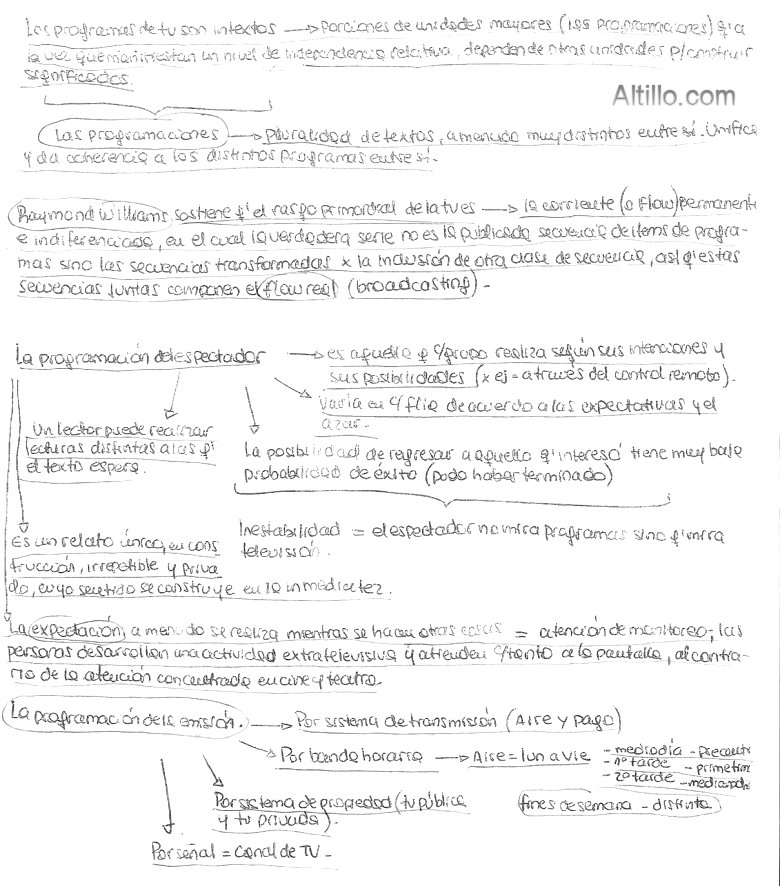 Los programas de tv son intextos → Porciones de unidades mayores (las programaciones) q' a
la vez que manifiestan un nivel de independencia relativa, dependen de otras unidades p/construir
significados.
Altillo.com
Las programaciones → pluralidad de textos, a menudo muy distintos entre sí. Unifica
y da coherencia a los distintos programas entre sí.
Raymond Williams sostiene q' el rasgo primordial de la tv es → la corriente (o flow) permanente
e indiferenciada, en el cual la verdadera serie no es la publicada secuencia de items de progra-
mas sino las secuencias transformadas x la inclusión de otra clase de secuencia, así q' estas
secuencias juntas componen el flow real (broadcasting) -
La programación del espectador → es aquella q' c/grupo realiza según sus intenciones y
sus posibilidades (x ej = a través del control remoto).
Varía en c/flia de acuerdo a las expectativas y el
azar.
Un lector puede realizar
lecturas distintas a las q'
el texto espera.
La posibilidad de regresar a aquello q' interesó tiene muy baja
probabilidad de éxito (pudo haber terminado)
Inestabilidad = el espectador no mira programas sino q' mira
televisión.
Es un relato único, en cons
trucción, irrepetible y priva
do, cuyo sentido se construye en la inmediatez.
La expectación, a menudo se realiza mientras se hacen otras cosas = atención de monitoreo; las
personas desarrollan una actividad extratelevisiva y atienden c/tanto a la pantalla, al contra-
rio de la atención concentrada en cine y teatro.
La programación de la emisión. → Por sistema de transmisión (Aire y pago)
Por banda horaria → Aire = lun a vie - mediodía -
- 1º tarde -
- 2º tarde -
Por sistema de propiedad (tv pública
y tv privada).
fines de semana - distinta
Por señal = canal de TV -